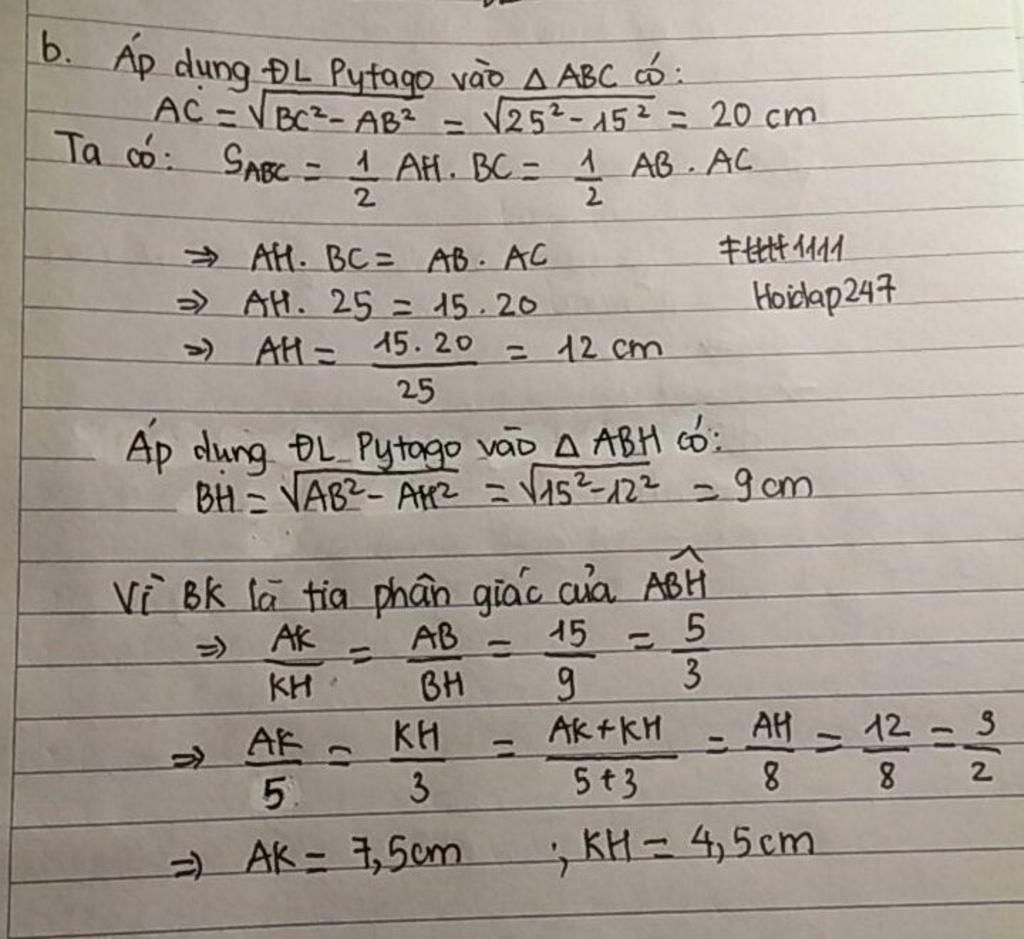 b. Áp dụng ĐL Pytago vào Δ ABC có:
AC = √BC² - AB² = √25² - 15² = 20 cm
Ta có: S_ABC = 1/2 AH . BC = 1/2 AB . AC
⇒ AH . BC = AB . AC
⇒ AH . 25 = 15 . 20
⇒ AH = 15.20/25 = 12 cm
Hoidap247
Áp dụng ĐL Pytago vào Δ ABH có:
BH = √AB² - AH² = √15² - 12² = 9 cm
Vì BK là tia phân giác của ABH^
⇒ AK/KH = AB/BH = 15/9 = 5/3
⇒ AK/5 = KH/3 = AK+KH/5+3 = AH/8 = 12/8 = 3/2
⇒ AK = 7,5cm ; KH = 4,5cm